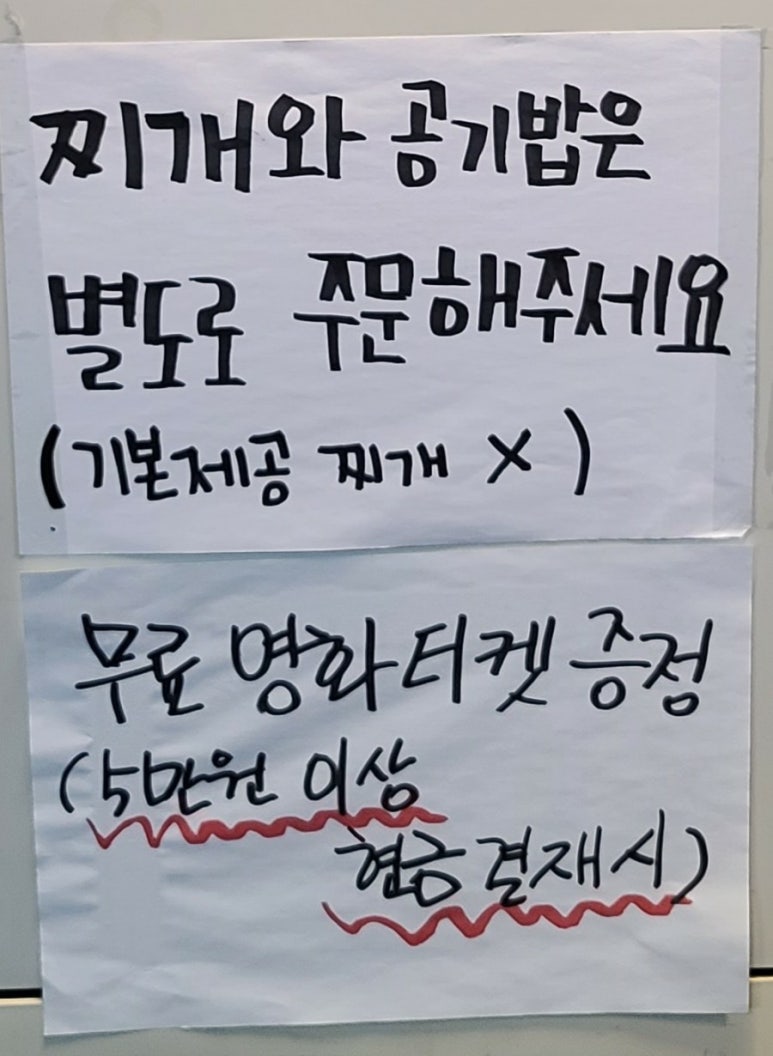 찌개와 공기밥은
별도로 주문해주세요
(기본제공 찌개 X)
무료 영화티켓 증정
(5만원 이상
현금결재시)